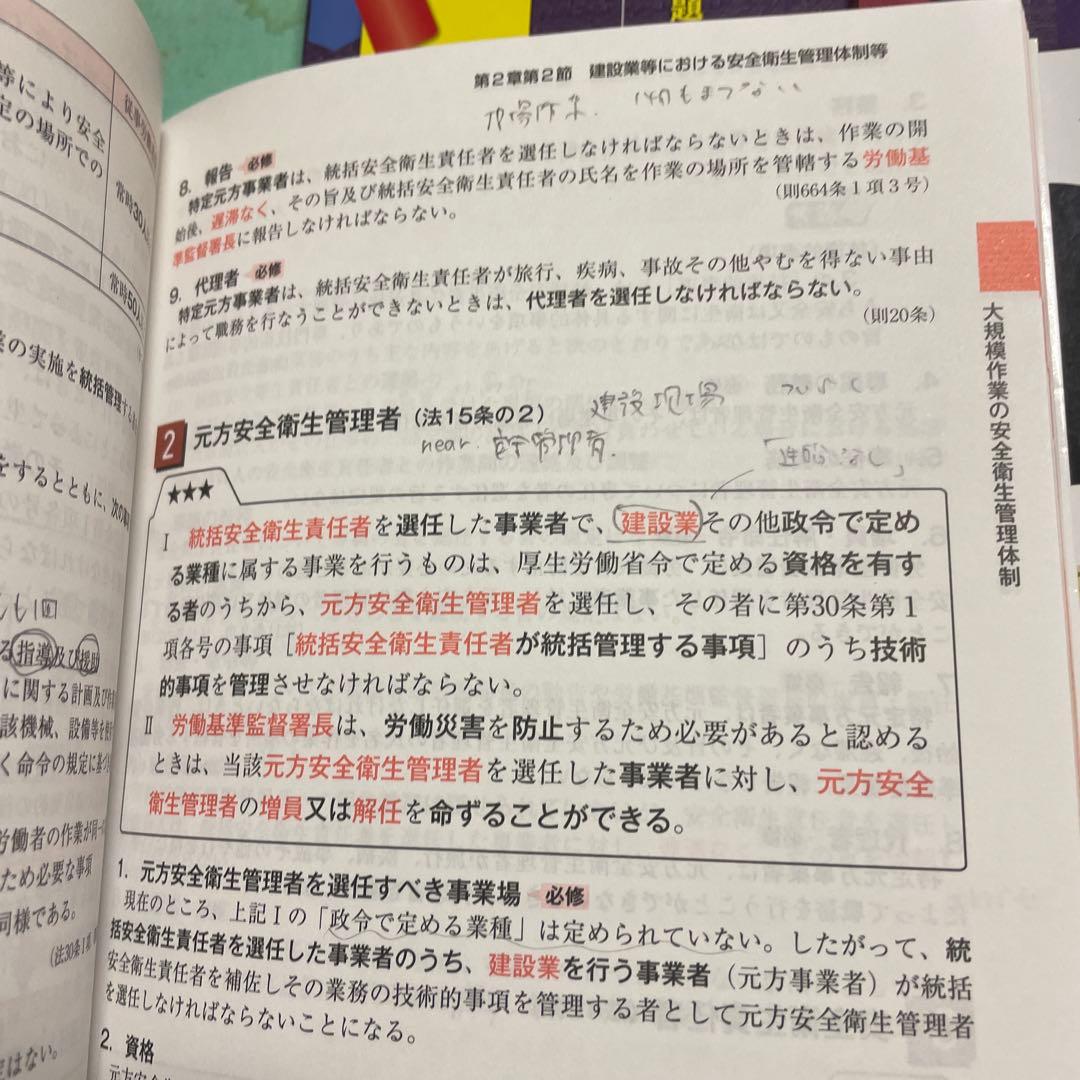 等により安全
定の場所での
常時30人
常時50人
業の実施を統括管理する
をするとともに、次の
も1回
る指導及び援助
に関する計画及び作
該機械、設備等を使
く命令の規定に基づ
労働者の作業が同一
ため必要な事項
同様である。
(法30条1項
はない。
第2章第2節 建設業等における安全衛生管理体制等
8. 報告 必修
特定元方事業者は、統括安全衛生責任者を選任しなければならないときは、作業の開
始後、遅滞なく、その旨及び統括安全衛生責任者の氏名を作業の場所を管轄する労働基
準監督署長に報告しなければならない。
(則664条1項3号)
9. 代理者 必修
特定元方事業者は、統括安全衛生責任者が旅行、疾病、事故その他やむを得ない事由
によって職務を行なうことができないときは、代理者を選任しなければならない。
(則20条)
2 元方安全衛生管理者(法15条の2)
建設現場
near.
★★★
Ⅰ 統括安全衛生責任者を選任した事業者で、建設業その他政令で定め
る業種に属する事業を行うものは、厚生労働省令で定める資格を有す
る者のうちから、元方安全衛生管理者を選任し、その者に第30条第1
項各号の事項[統括安全衛生責任者が統括管理する事項]のうち技術
的事項を管理させなければならない。
Ⅱ 労働基準監督署長は、労働災害を防止するため必要があると認める
ときは、当該元方安全衛生管理者を選任した事業者に対し、元方安全
衛生管理者の増員又は解任を命ずることができる。
1. 元方安全衛生管理者を選任すべき事業場 必修
現在のところ、上記Ⅰの「政令で定める業種」は定められていない。したがって、統
括安全衛生責任者を選任した事業者のうち、建設業を行う事業者(元方事業者)が統括
安全衛生責任者を補佐しその業務の技術的事項を管理する者として元方安全衛生管理者
を選任しなければならないことになる。
2. 資格
大規模作業の安全衛生管理体制